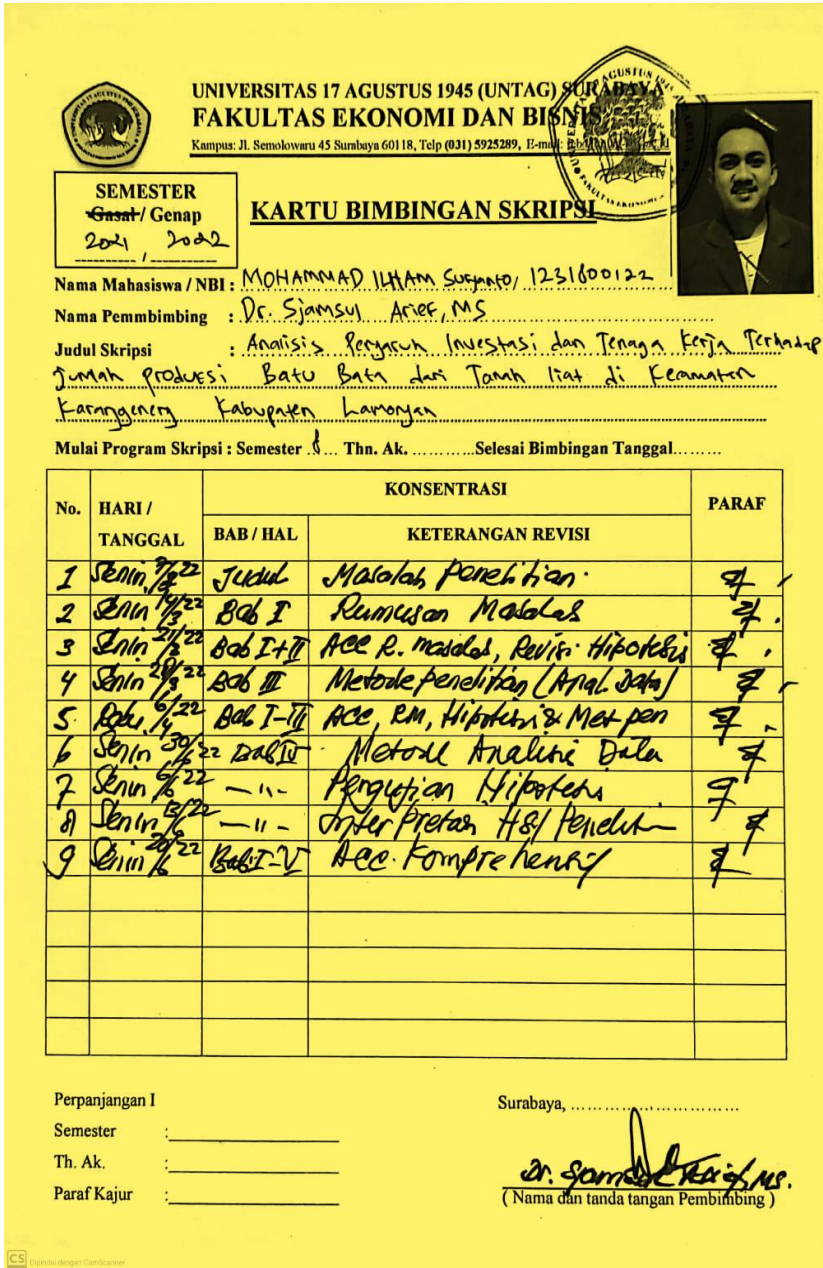 UNIVERSITAS 17 AGUSTUS 1945 (UNTAG) SURABAYA
FAKULTAS EKONOMI DAN BISNIS
Kampus: Jl. Semolowaru 45 Surabaya 60118, Telp (031) 5925289, E-mail:
SEMESTER
Gasal / Genap
2021 / 2022
KARTU BIMBINGAN SKRIPSI
Nama Mahasiswa / NBI : MOHAMMAD ILHAM Suryanto, 1231800122
Nama Pemmbimbing : Dr. Sjamsul Arief, MS
Judul Skripsi : Analisis Pengaruh Investasi dan Tenaga Kerja Terhadap
Jumlah Produksi Batu Bata dari Tanah liat di Kecamatan
Karanggeneng Kabupaten Lamongan
Mulai Program Skripsi : Semester 8 Thn. Ak. ............Selesai Bimbingan Tanggal........
No. HARI / TANGGAL KONSENTRASI PARAF
BAB / HAL KETERANGAN REVISI
1 Senin 7/3 22 Judul Masalah penelitian.
2 Senin 14/3 22 Bab I Rumusan Masalah
3 Senin 21/3 22 Bab I+II ACC R. masalah, Revisi Hipotesis
4 Senin 28/3 22 Bab III Metode penelitian (Anal. Data)
5. Rabu 6/4 22 Bab I-III ACC, RM, Hipotesis & Met pen
6 Senin 30/5 22 Bab IV Metode Analisis Data
7 Senin 6/6 22 -"- Pengujian Hipotesis
8 Senin 13/6 22 -"- Interpretasi Hsl Penelit
9 Senin 20/6 22 Bab I-V Acc. Komprehensif
Perpanjangan I
Semester :
Th. Ak. :
Paraf Kajur :
Surabaya, ..............................
Dr. Sjamsul Arief, MS.
( Nama dan tanda tangan Pembimbing )
CS Dipindai dengan CamScanner